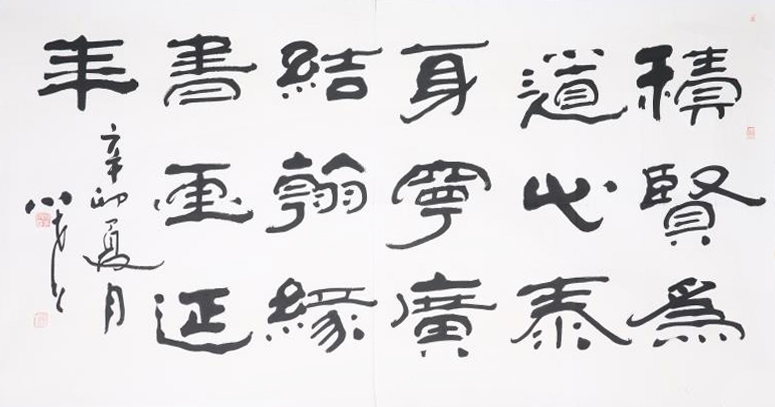 積賢爲
道心泰
身寧廣
結翰緣
書画延
年
辛卯夏月